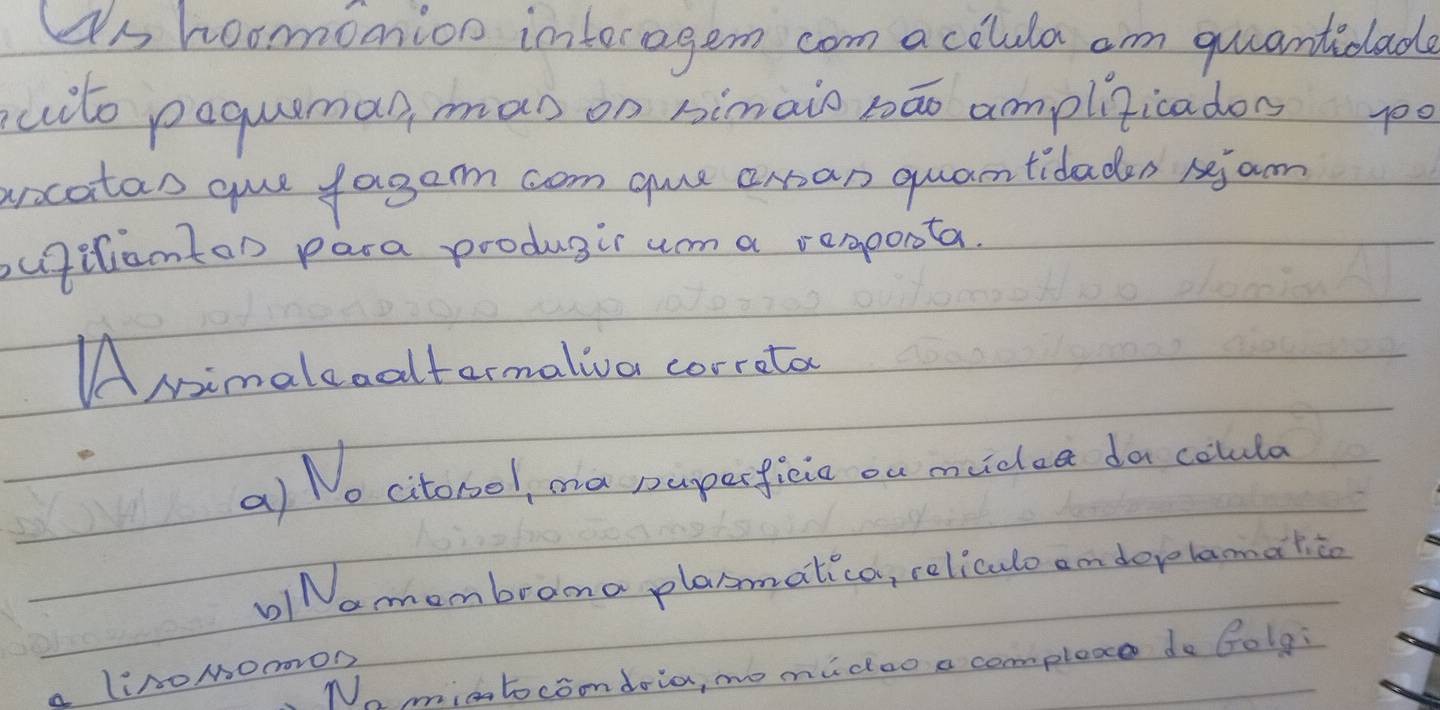 Os hormônios interagem com a célula em quantidade
muito pequenas, mas os sinais são amplificados po
cascatas que fazem com que essas quantidades sejam
suficientes para produzir uma resposta.
Assinale a alternativa correta
a) No citosol, na superfície ou núcleo da célula
b) Na membrana plasmática, retículo endoplamático
e lisossomos
Na mitocôndria, no núcleo e complexo de Golgi